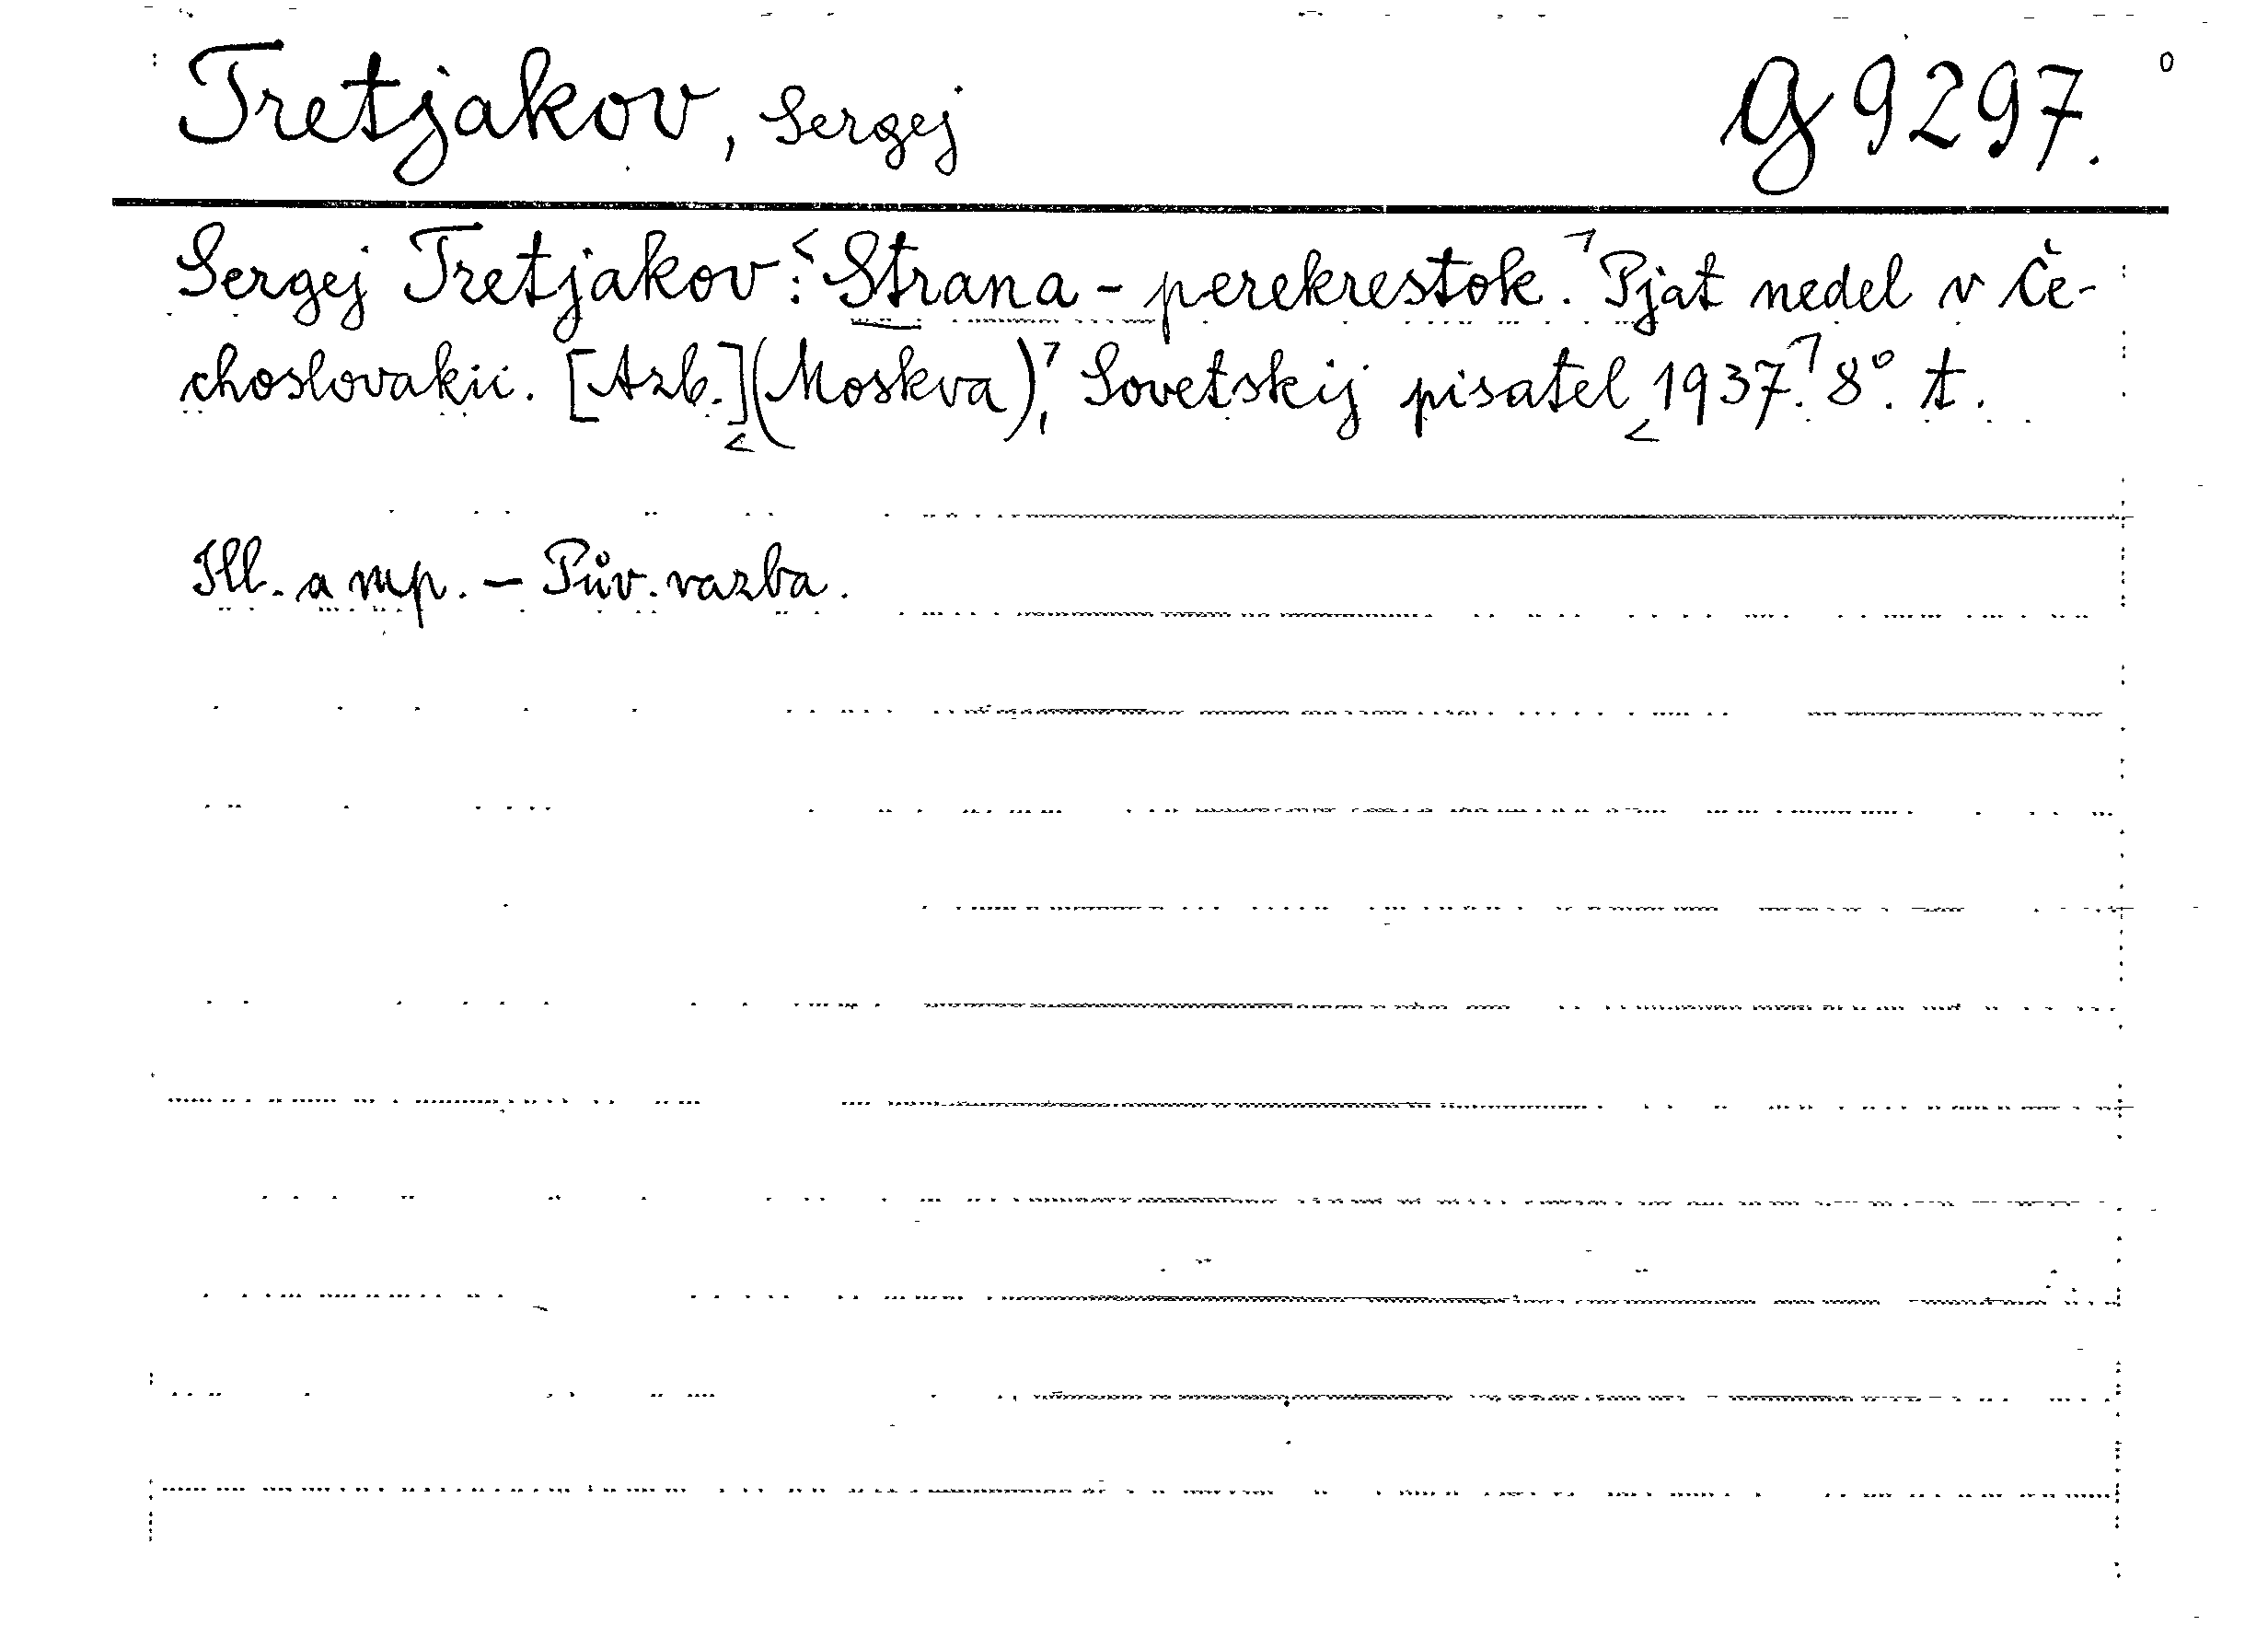 Tretjakov, Sergej G 9297.
Sergej Tretjakov: Strana - perekrestok. Pjat nedel v Če-
choslovakii. [Azb.] (Moskva), Sovetskij pisatel 1937. 8°. t.
Ill. a mp. — Pův. vazba.